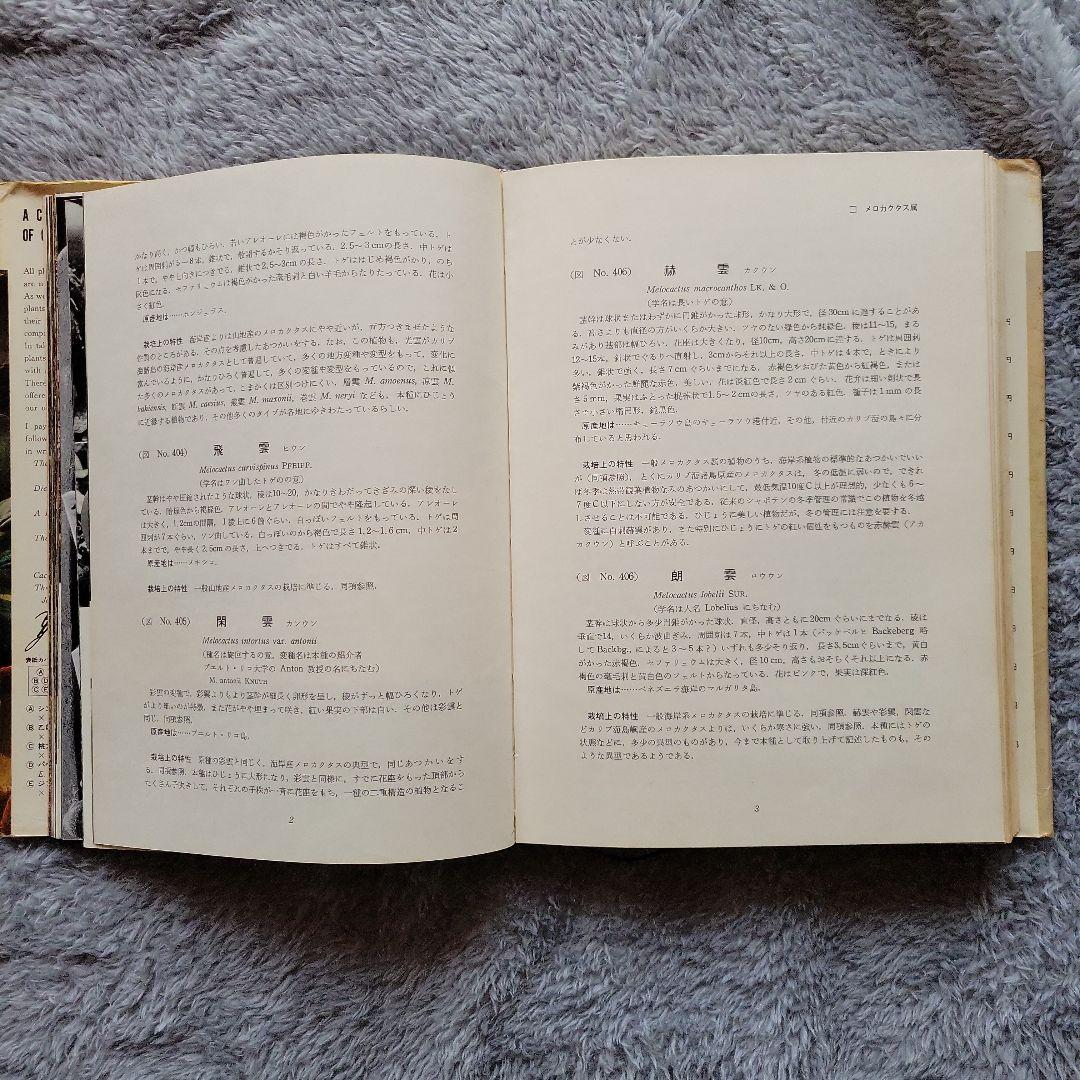 A C
OF (
All pl
are n
As we
plants
their
compa
In tak
plants
with i
There
offere
our o
I pay
follow
in wr
The
Die
A l
Tha
Cac
The
J
表紙カ
かなり高く，かつ幅もひろい．若いアレオーレには褐色がかったフェルトをもっている．ト
ゲは周囲刺が7〜8本，錐状で，散開するかそり返っている．2.5〜3cmの長さ．中トゲは
1本で，やや上向きにつきでる．錐状で2.5〜3cmの長さ．トゲははじめ褐色がかり，のち
灰色になる．セファリュウムは褐色がかった亳毛刺と白い羊毛からなりたっている．花は小
さく紅色．
原産地は……ホンジュラス．
栽培上の特性
（図 No. 404） 飛 雲 ヒウン
Melocactus curvispinus PFEIFF.
（学名はワン曲したトゲのの意）
茎幹はやや圧縮されたような球状，稜は10〜20，かなりきわだってきざみの深い稜をなし
ている．暗緑色から視緑色．アレオーレとアレオーレの間でやや隆起している．アレオーレ
は大きく，1.2cmの間隔，1稜上に6箇ぐらい．白っぽいフェルトをもっている．トゲは周
囲刺が7本ぐらい，ワン曲している．白っぽいのから褐色で長さ1.2〜1.6cm，中トゲは2
本までで，やや長く2.5cmの長さ，上へつきでる．トゲはすべて錐状．
原産地は……メキシコ．
栽培上の特性 一般山地産メロカクタスの栽培に準じる．同項参照．
（図 No. 405） 閑 雲 カンウン
Melocactus intortus var. antonii
（種名は旋回するの意，変種名は本種の紹介者
プエルト・リコ大学の Anton 教授の名にちなむ）
M. antonii KNUTH
彩雲の変種で，彩翼よりもより茎幹が細長く卵形を呈し，稜がずっと幅ひろくなり，トゲ
がより短いのが特徴．また花がやや埋まって咲き，紅い果実の下部は白い．その他は彩雲と
同じ．同項参照．
原産地は……プエルト・リコ島．
栽培上の特性 原種の彩雲と同じく，海岸産メロカクタスの典型で，同じあつかいをす
る．同項参照．本種はひじょうに大形になり，彩雲と同様に，すでに花座をもった頂部から
たくさん子吹きして，それぞれの子株が一斉に花座をもち，一種の二重構造の植物となるこ
2
□ メロカクタス属
とが少なくない．
（図 No. 406） 赫 雲 カクウン
Melocactus macrocanthos LK. & O.
（学名は長いトゲの意）
茎幹は球状またはわずかに円錐がかった球形，かなり大形で，径30cmに達することがあ
る．高さよりも直径の方がいくらか大きい．ツヤのない緑色から純緑色，稜は11〜15，まる
みがあり基部は幅ひろい．花座は大きくなり，径10cm，高さ20cmに達する．トゲは周囲刺
12〜15本，針状でぐるりへ直射し，2cmからそれ以上の長さ．中トゲは4本で，ときにより
多い．錐状で強く，長さ7cmぐらいまでになる．赤褐色をおびた黄色から紅褐色，または
紫褐色がかった鮮麗な赤色，美しい．花は淡紅色で長さ2cmぐらい．花弁は細い剣状で長
さ5mm，果実はふとった棍棒状で1.5〜2cmの長さ．ツヤのある紅色．種子は1mmの長
さで小さい楕円形，鈍黒色．
原産地は……キューラソウ島のキューラソウ港付近，その他，付近のカリブ海の島々に分
布していると思われる．
栽培上の特性 一般メロカクタス属の植物のうち，海岸系植物の標準的なあつかいでいい
が（同項参照），とくにカリブ海諸島原産のメロカクタスは，冬の低温に弱いので，できれ
ば冬季に熱帯観葉植物なみのあつかいにして，最低気温10度C以上が理想的，少なくも6〜
7度C以下にしない方が安全である．従来のシャボテンの冬季管理の常識でこの植物を冬越
しさせることは不可能である．ひじょうに美しい植物だが，冬の管理には注意を要する．
変種に白刺赫雲があり，また特別にひじょうにトゲの紅い個性をもつものを赤赫雲（アカ
カクウン）と呼ぶことがある．
（図 No. 406） 朗 雲 ロウウン
Melocactus lobelii SUR.
（学名は人名 Lobelius にちなむ）
茎幹は球状から多少円錐がかった球状，直径，高さともに20cmぐらいにまでなる．稜は
垂直で14，いくらか波山ぎみ．周囲刺は7本，中トゲは1本（バッケベルと Backeberg 略
して Backbg., によると3〜5本？）いずれも多少そり返り，長さ3.5cmぐらいまで，黄白
がかった赤褐色．セファリュウムは大きく，径10cm，高さもおそらくそれ以上になる．赤
褐色の亳毛刺と黄白色のフェルトからなっている．花はピンクで，果実は深紅色．
原産地は……ベネズエラ海岸のマルガリタ島．
栽培上の特性 一般海岸系メロカクタスの栽培に準じる．同項参照．赫雲や彩雲，閑雲な
どカリブ海島嶼産のメロカクタスよりは，いくらか寒さに強い．同項参照．本種にはトゲの
状態などに，多少の異型のものがあり，今まで本種として取り上げて記述したものも，その
ような異型であるようである．
3